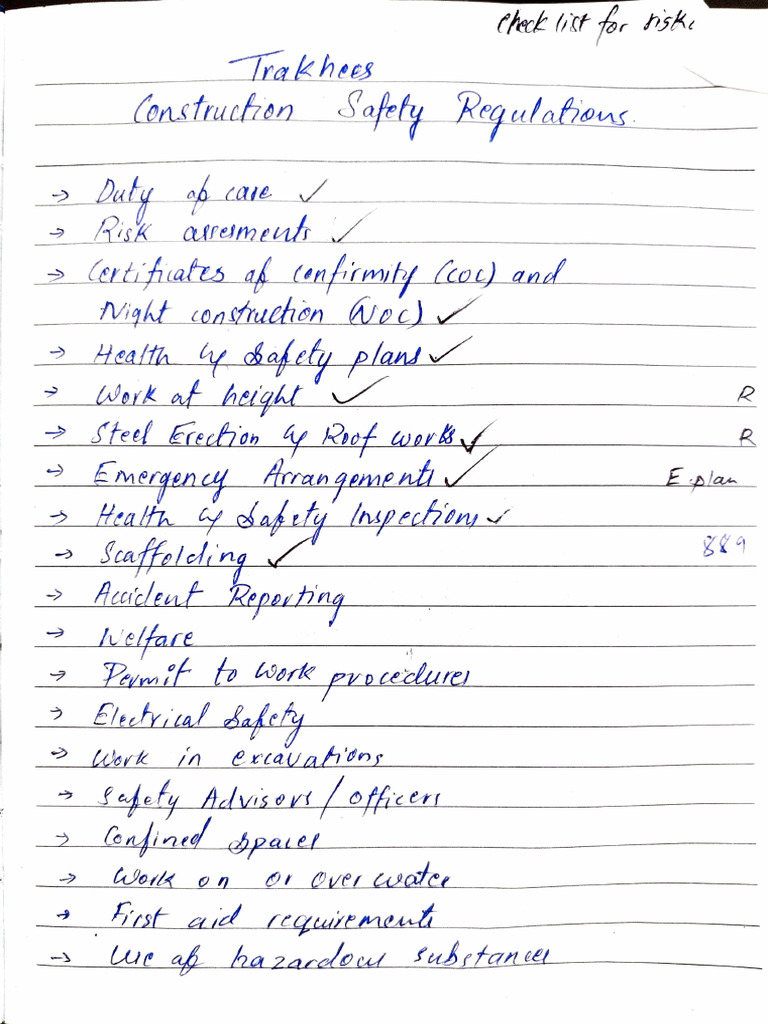 Check list for risk
Trakhees
Construction Safety Regulations.
→ Duty of care ✓
→ Risk assesments ✓
→ Certificates of confirmity (COC) and
Night construction (NOC) ✓
→ Health & Safety plans ✓
→ Work at height ✓ R
→ Steel Erection & Roof works ✓ R
→ Emergency Arrangements ✓ E.plan
→ Health & Safety Inspections ✓
→ Scaffolding ✓ 889
→ Accident Reporting
→ Welfare
→ Permit to Work procedures
→ Electrical Safety
→ Work in excavations
→ Safety Advisors / Officers
→ Confined spaces
→ Work on or over water
→ First aid requirements
→ Use of hazardous substances